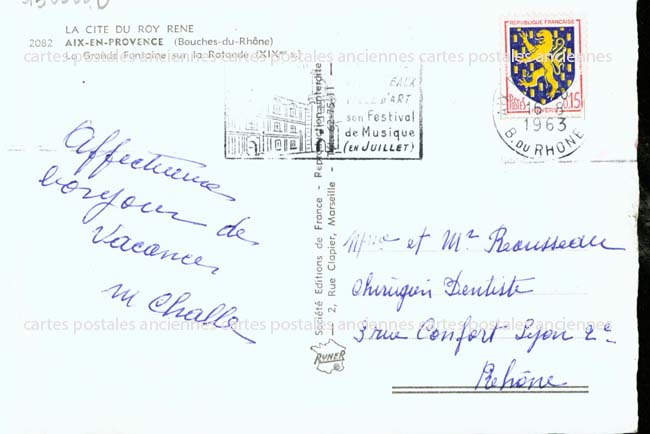 LA CITE DU ROY RENE
2082 AIX-EN-PROVENCE (Bouches-du-Rhône)
La Grande Fontaine sur la Rotonde (XIXme s.)
EAUX
D'ART
son Festival
de Musique
(EN JUILLET)
REPUBLIQUE FRANÇAISE
POSTES
0,15
NIVERNAIS
16-8
1963
B. DU RHONE
Affectueux
bonjour de
Vacances
M Challe
Société Editions de France - Reproduction interdite
2, Rue Clapier, Marseille - Tél. 62-75-11
RUNER
Mme et Mr Reousseau
Chirurgien Dentiste
3 rue Confort Lyon 2e
Rhône
cartes postales anciennes cartes postales anciennes cartes postales anciennes
cartes postales anciennes cartes postales anciennes cartes postales anciennes